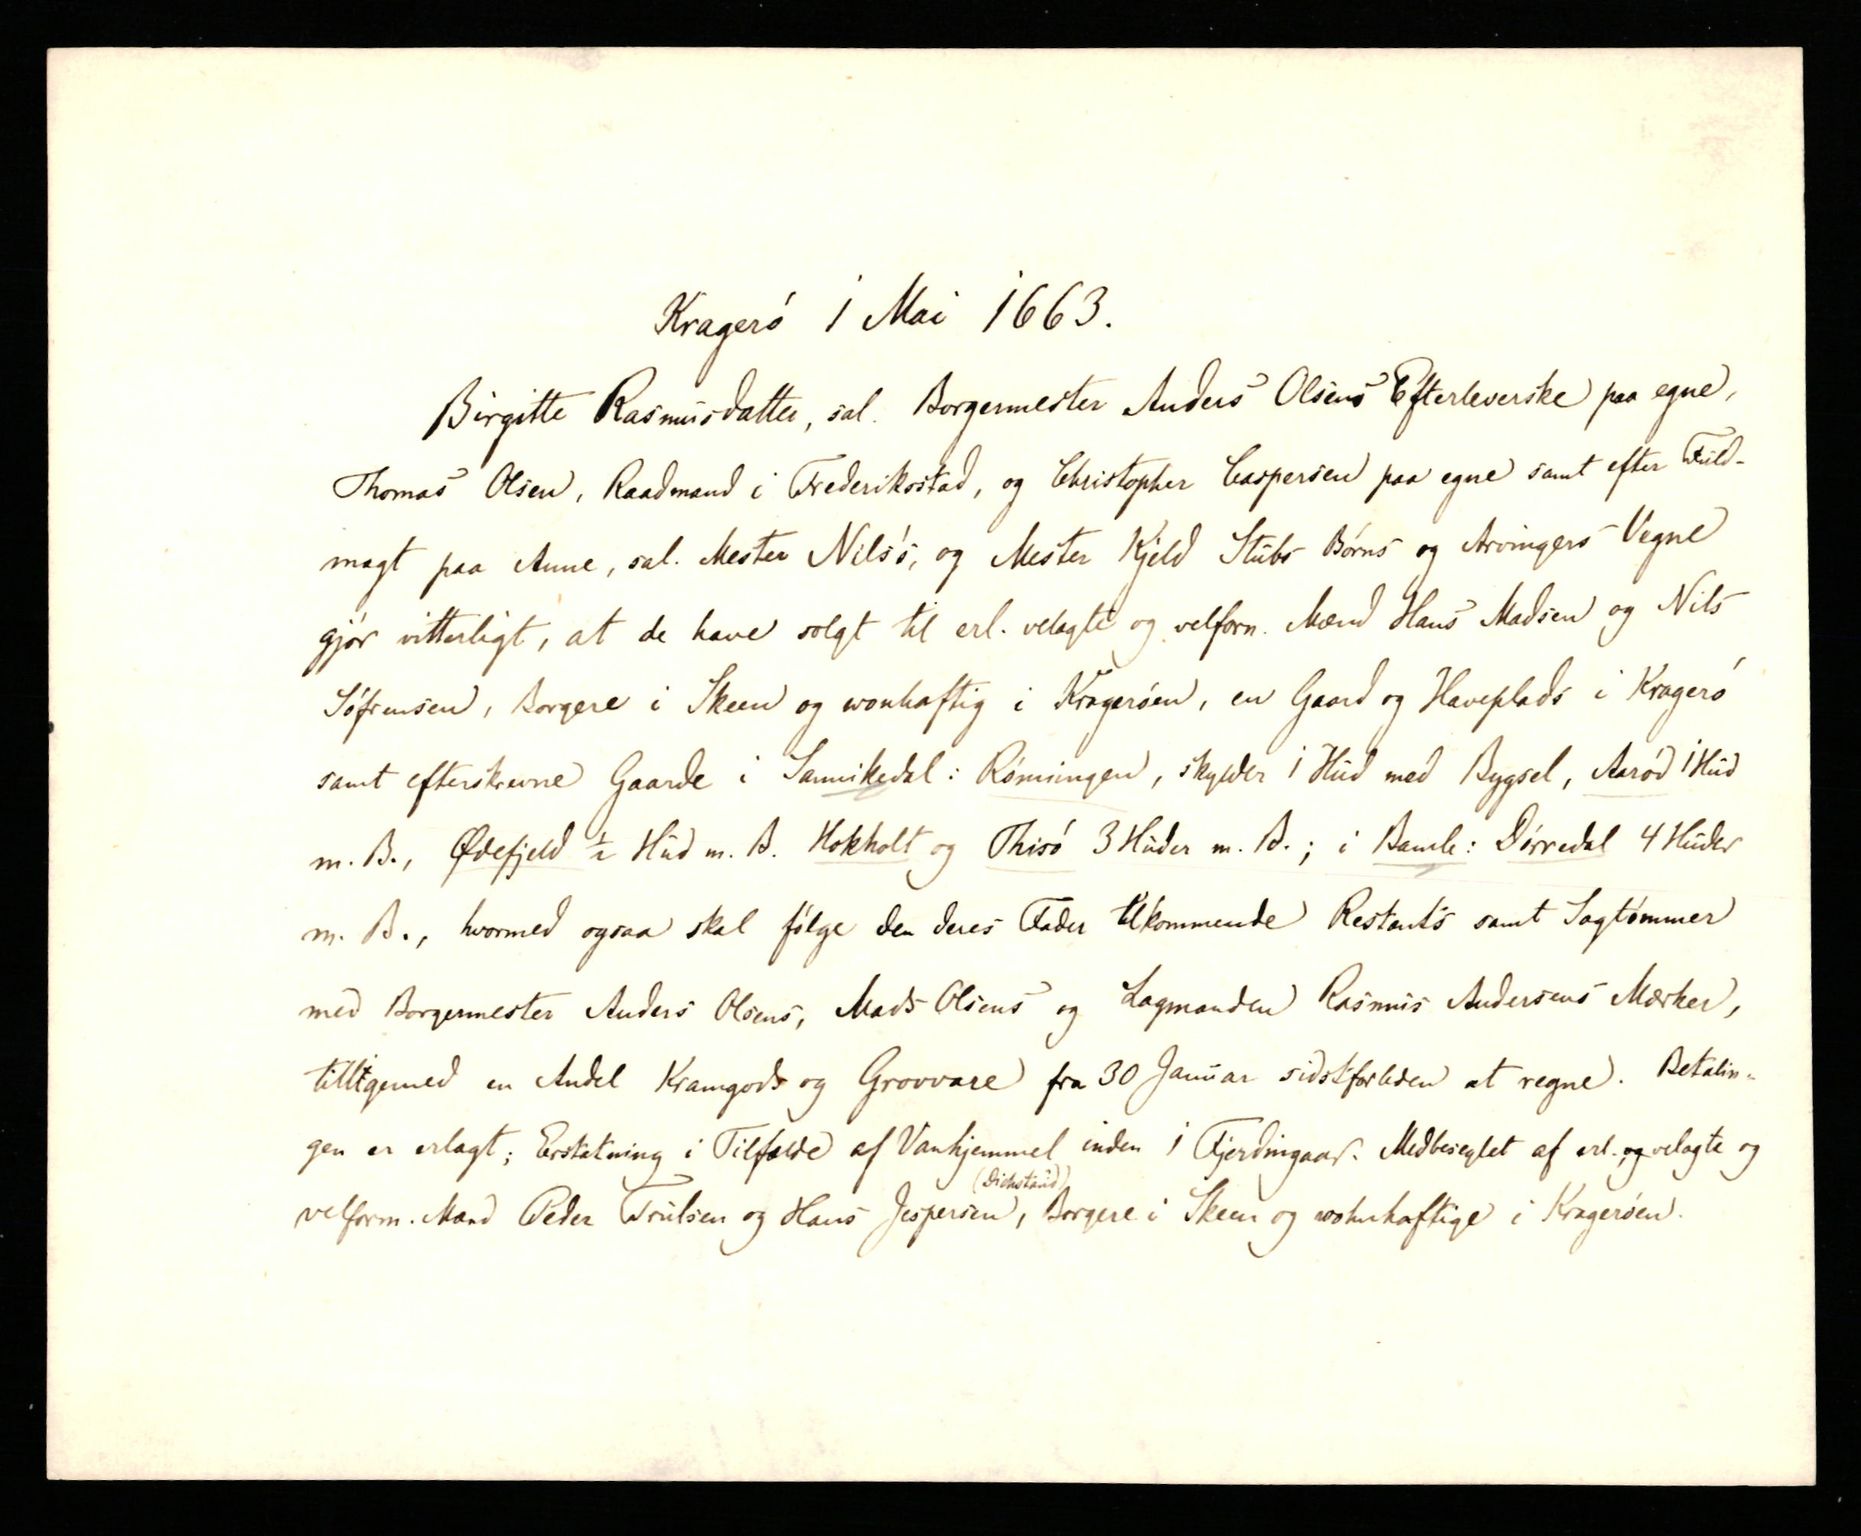 Kragerö 1 Mai 1663.
Birgitte Rasmusdatter, sal. Borgermester Anders Olsens Efterleverske paa egne,
Thomas Olsen, Raadmand i Frederiksstad, og Christopher Caspersen paa egne samt efter Fuld-
magt paa Anne, sal. Mester Nils's, og Mester Kjeld Stubs Börns og Arvingers Vegne
gjör vitterligt, at de have solgt til erl. velagte og velforn. Mænd Hans Madsen og Nils
Söfrensen, Borgere i Skeen og wonhaftig i Kragerøen, en Gaard og Haveplads i Kragerö
samt efterskrevne Gaarde i Sannikedal: Rönningen, skylder 1 Hud med Bygsel, Aaröd 1 Hud
m. B., Ødefjeld ½ Hud m. B. Hokholt og Thisö 3 Huder m. B.; i Bamle: Dörredal 4 Huder
m. B., hvormed ogsaa skal fölge den deres Fader tilkommende Restants samt Sagtömmer
med Borgermester Anders Olsens, Mads Olsens og Lagmanden Rasmus Andersens Mærker,
tilligemed en Andel Kramgods og Grovvare fra 30 Januar sidstforleden at regne. Betalin-
gen er erlagt; Erstatning i Tilfælde af Vanhjemmel inden 1 Fjerdingaar. Medbeseglet af erl. og velagte og
(Dichstud)
velforn. Mænd Peder Trulsen og Hans Jespersen, Borgere i Skeen og wohnhaftige i Kragerøen.